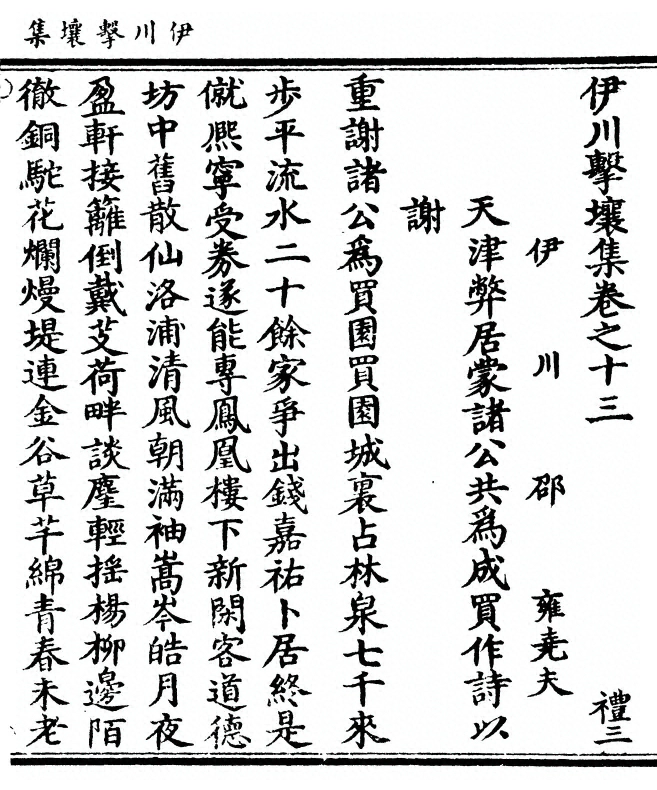 伊川擊壤集
伊川擊壤集卷之十三
禮三
伊川邵雍堯夫
天津弊居蒙諸公共為成買作詩以
謝
重謝諸公爲買園買園城裏占林泉七千來
步平流水二十餘家爭出錢嘉祐卜居終是
僦熈寧受券遂能專鳳凰樓下新閑客道德
坊中舊散仙洛浦清風朝滿袖嵩岑皓月夜
盈軒接籬倒戴芰荷畔談麈輕摇楊柳邊陌
徹銅駝花爛熳堤連金谷草芊綿青春未老